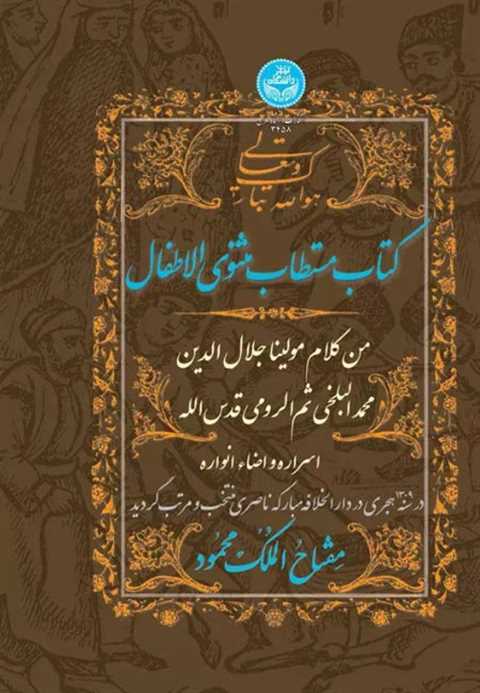 ۳۴۵۸
هو الله تبارک و تعالی
کتاب مستطاب مثنوی الاطفال
من کلام مولینا جلال الدین
محمد البلخی ثم الرومی قدس الله
اسراره و اضاء انواره
در سنه ۱۳۰۹ هجری در دار الخلافه مبارکه ناصری منتخب و مرتب گردید
مفتاح الملک محمود